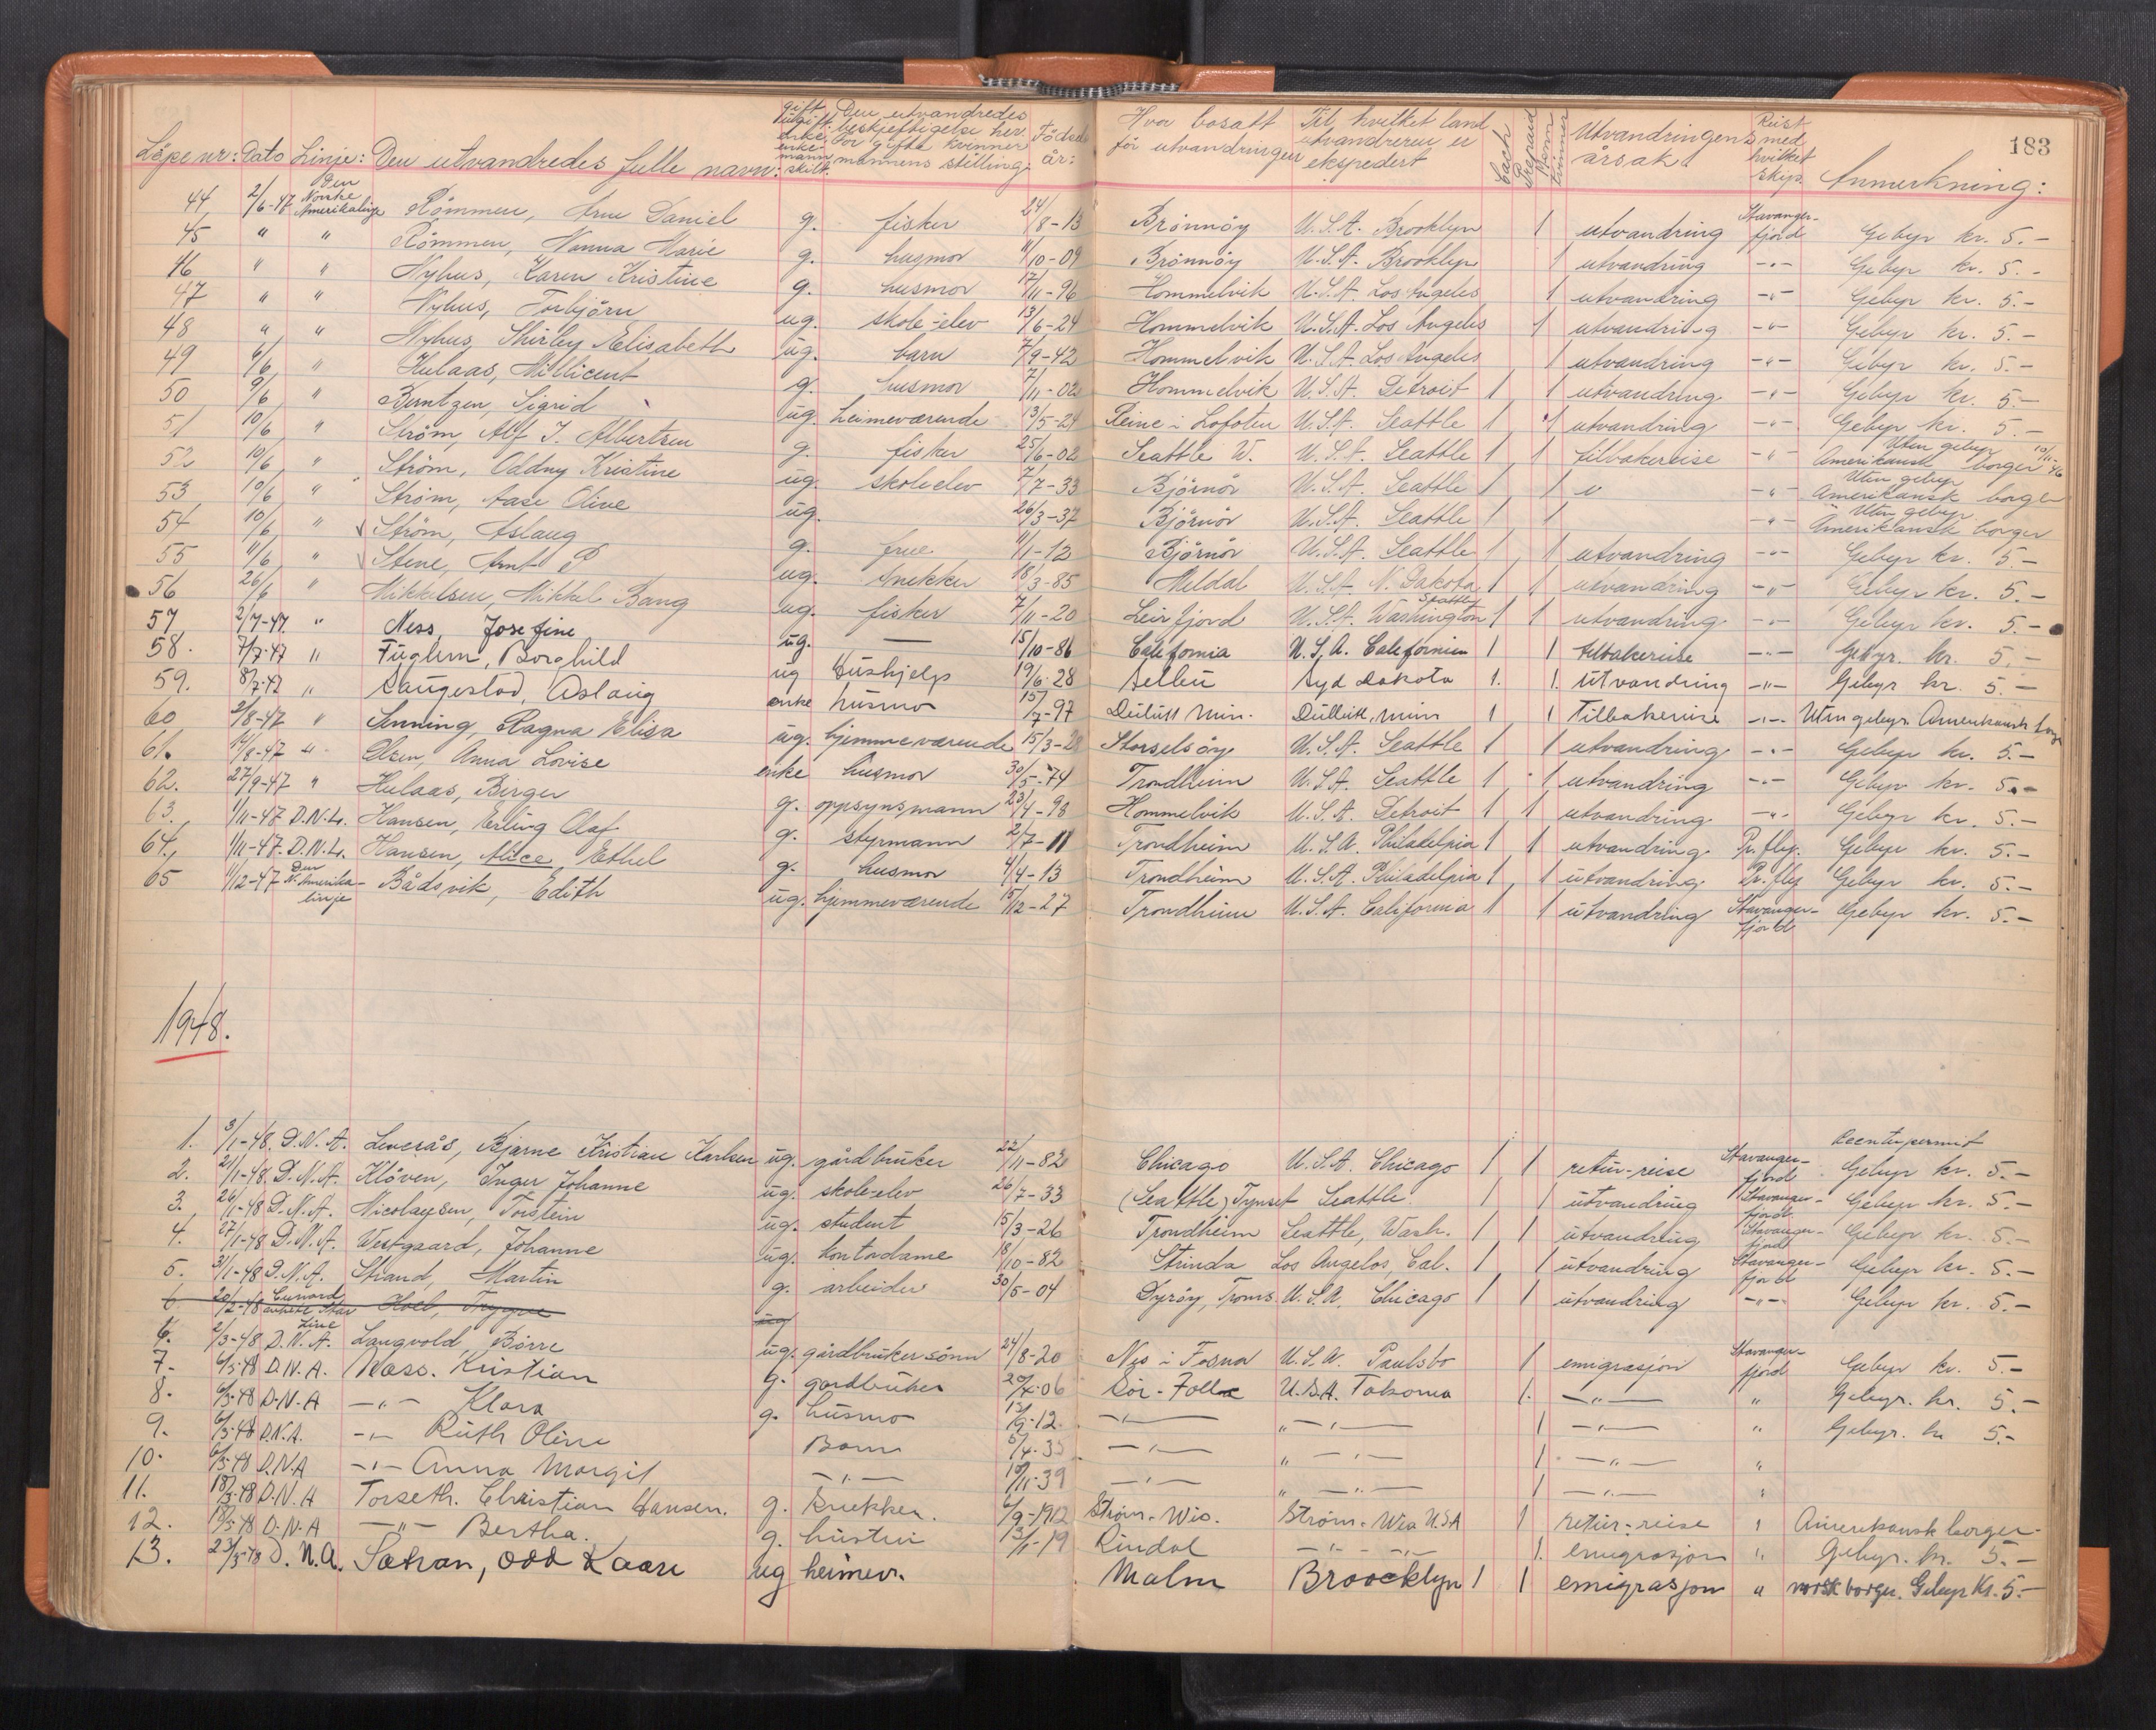 183
Löpe nr: Dato Linje: Den utvandredes fulle navn: gift, ugift, enke, enkemann, skilt. Den utvandredes beskjeftigelse her. For gifte kvinner mannens stilling. Födselsår: Hvor bosatt för utvandringen Til hvilket land utvandreren er ekspedert Cach Prepaid Menn Kvinner Utvandringens årsak Reist med hvilket skip. Anmerkning:
44 2/6-47 Den Norske Amerikalinje Römmen, Arne Daniel g. fisker 24/8-13 Brönnöy U.S.A. Brooklyn 1 utvandring Stavangerfjord Gebyr kr. 5.-
45 " " Römmen, Nanna Marie g. husmor 11/10-09 Brönnöy U.S.A. Brooklyn 1 utvandring -"- Gebyr kr. 5.-
46 " " Nyhus, Karen Kristine g. husmor 17/11-96 Hommelvik U.S.A. Los Angeles 1 utvandring -"- Gebyr kr. 5.-
47 " " Nyhus, Torbjörn ug. skole-elev 13/6-24 Hommelvik U.S.A. Los Angeles 1 utvandring -"- Gebyr kr. 5.-
48 " " Nyhus, Shirley Elisabeth ug. barn 7/9-42 Hommelvik U.S.A. Los Angeles 1 utvandring -"- Gebyr kr. 5.-
49 6/6 " Hulaas, Millicent g. husmor 7/11-02 Hommelvik U.S.A. Detroit 1 1 utvandring -"- Gebyr kr. 5.-
50 9/6 " Berntzen, Sigrid ug. heimeværende 13/5-24 Reine i Lofoten U.S.A. Seattle 1 1 utvandring -"- Gebyr kr. 5.-
51 10/6 " Ström, Alf J. Albertzen g. fisker 25/6-02 Seattle W. U.S.A. Seattle 1 1 tilbakereise -"- Uten gebyr Amerikansk borger 10/11-46
52 10/6 " Ström, Oddny Kristine ug. skoleelev 7/7-33 Björnör U.S.A. Seattle 1 1 " -"- Uten gebyr Amerikansk borger
53 10/6 " Ström, Aase Oline ug. 26/3-37 Björnör U.S.A. Seattle 1 1 -"- Uten gebyr Amerikansk borger
54 10/6 " Ström, Aslaug g. frue 11/1-12 Björnör U.S.A. Seattle 1 1 utvandring -"- Gebyr kr. 5.-
55 11/6 " Stene, Arnt P ug. snekker 18/3-85 Meldal U.S.A. N. Dakota 1 1 utvandring -"- Gebyr kr. 5.-
56 26/6 " Mikkelsen, Mikkel Bang ug. fisker 7/11-20 Leirfjord U.S.A. Washington Seattle 1 1 utvandring -"- Gebyr kr. 5.-
57 2/7-47 " Ness, Josefine ug. — 15/10-86 California U.S.A. California 1 1 tilbakereise -"- Gebyr. kr. 5.-
58. 7/7-47 " Fuglem, Borghild ug Hushjelp 19/6-28 Selbu Syd Dakota 1. 1. Utvandring -"- Gebyr kr. 5.-
59. 8/7-47 " Langestad, Aslaug enke husmor 15/7-97 Dulutt Min. Dullutt, Min 1 1 Tilbakereise -"- Uten gebyr. Amerikansk borger
60 2/8-47 " Senning, Ragna Elisa ug. hjemmeværende 15/3-29 Storselsöy U.S.A. Seattle 1 1 utvandring -"- Gebyr kr. 5.-
61. 14/8-47 " Olsen, Anna Lovise enke husmor 30/5-74 Trondheim U.S.A. Seattle 1 1 utvandring -"- Gebyr kr. 5.-
62. 27/9-47 " Hulaas, Birger g. oppsynsmann 23/4-98 Hommelvik U.S.A. Detroit 1 1 utvandring -"- Gebyr kr. 5.-
63. 1/11-47 D.N.L. Hansen, Erling Olaf g. styrmann 2/7-11 Trondheim U.S.A. Philadelpia 1 1 utvandring Pr. fly. Gebyr kr. 5.-
64. 1/11-47. D.N.L. Hansen, Alice Ethel g. husmor 4/4-13 Trondheim U.S.A. Philadelpia 1 1 utvandring Pr. fly Gebyr kr. 5.-
65 11/12-47 Den N. Amerikalinje Bådsvik, Edith ug. hjemmeværende 15/12-27 Trondheim U.S.A. California 1 1 utvandring Stavangerfjord Gebyr kr. 5.-
1948.
1. 3/1-48. D.N.A. Leverås, Bjarne Kristian Karlsen ug. gårdbruker 22/11-82 Chicago U.S.A. Chicago 1 1 retur-reise Stavangerfjord Reentrypermit Gebyr kr. 5.-
2. 21/1-48. D.N.A. Klöven, Inger Johanne ug. skoleelev 26/7-33 (Seattle) Tynset Seattle 1 1 utvandring Stavangerfjord Gebyr kr. 5.-
3. 26/1-48 D.N.A. Nicolaysen, Torstein ug. student 15/3-26 Trondheim Seattle, Wash. 1 1 utvandring Stavangerfjord Gebyr kr. 5.-
4. 27/1-48 D.N.A. Westgaard, Johanne ug. kontordame 18/10-82 Strinda Los Angelos, Cal. 1 1 utvandring Stavangerfjord Gebyr kr. 5.-
5. 31/1-48 D.N.A. Strand, Martin g. arbeider 30/5-04 Dyröy, Troms. U.S.A. Chicago 1 1 utvandring -"- Gebyr kr. 5.-
6 20/2-48 Cunard White Star Line Hoel, Trygve ug
6. 2/3-48 D.N.A. Langvold, Börre ug. gårdbrukersönn 24/8-20 Nes i Fosna U.S.A. Paulsbo 1 emigrasjon Stavangerfjord Gebyr kr. 5.-
7. 6/3-48 D.N.A. Moss. Kristian g. gardbruker 20/4-06 Sör-Folla U.S.A. Takoma 1. -"- " Gebyr. kr. 5.-
8. 6/3-48 D.N.A -"- Klara g. husmor 12/9-12 -"- " -"- 1 -"- " Gebyr. kr 5.-
9. 6/3-48 D.N.A. -"- Ruth Oline Barn 5/4-35 -"- " -"- 1 -"- "
10. 6/3-48 D.N.A -"- Anna Margit -"- 10/11-39 -"- " -"- 1 -"- "
11. 18/3-48 D.N.A Torseth. Christian Hansen. g. Snekker. 6/9-1912 Strøm. Wis. Strøm. Wis U.S.A 1 retur-reise " Amerikansk borger
12. 18/3-48 D.N.A -"- Bertha. g. hustru 13/1-19 Rindal -"- -"- 1. emigrasjon " Gebyr. kr. 5.-
13. 23/3-48 D.N.A. Sætran, Odd Kaare ug heimev. Malm Broocklyn 1 1 emigrasjon " norsk borger. Gebyr Kr. 5.-